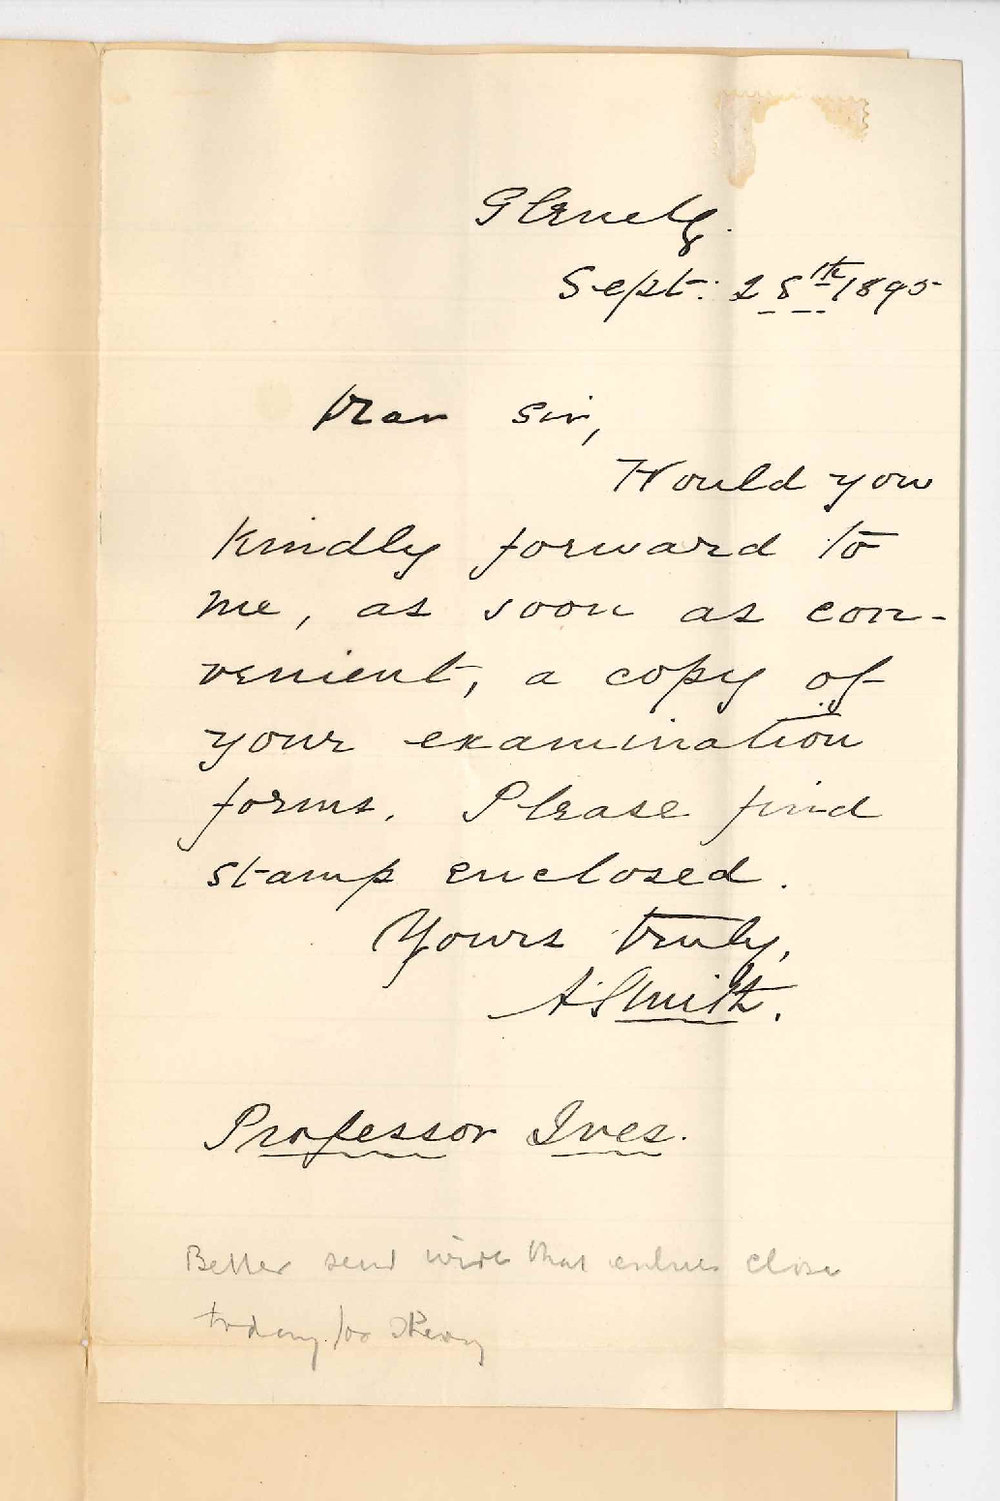 Glenelg.
Sept: 28th 1895
Dear Sir,
Would you
kindly forward to
me, as soon as con-
venient, a copy of
your examination
forms. Please find
stamp enclosed.
Yours truly,
A Smith.
Professor Ives.
Better send wire that entries close
today for theory